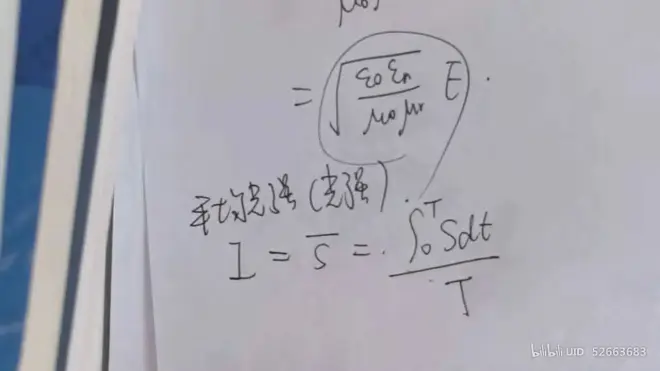 μ₀
= √(ε₀εᵣ/μ₀μᵣ) E.
平均光强(光强).
I = S̅ = ∫₀ᵀ Sdt / T
bilibili UID 52663683